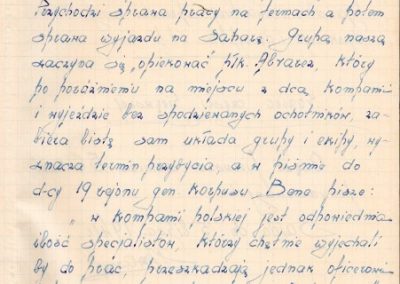 Przychodzi sprawa pracy na fermach a potem
sprawa wyjazdu na Saharę. Grupą naszą
zaczyna się „opiekować" płk. Abracer, który
po porozumieniu na miejscu z dcą kompanii
i wyjeździe bez spodziewanych ochotników, za-
biera listę sam układa grupy i ekipy, wy-
znacza termin przybycia, a w piśmie do
d-cy 19 rejonu gen. Korpusu Beno pisze:
„w kompanii polskiej jest odpowiednia
ilość specjalistów, którzy chętnie wyjechali
by do prac, przeszkadzają jednak oficerowie